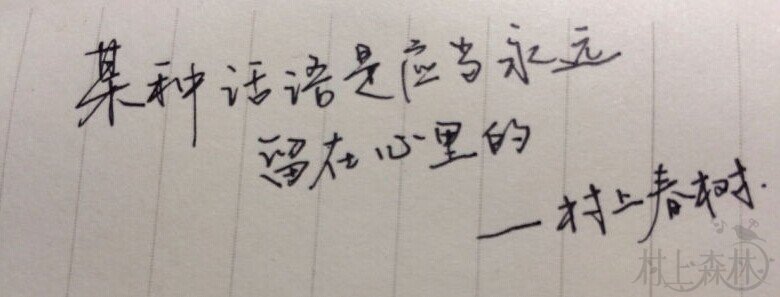 某种话语是应当永远
留在心里的
—村上春树.
村上森林